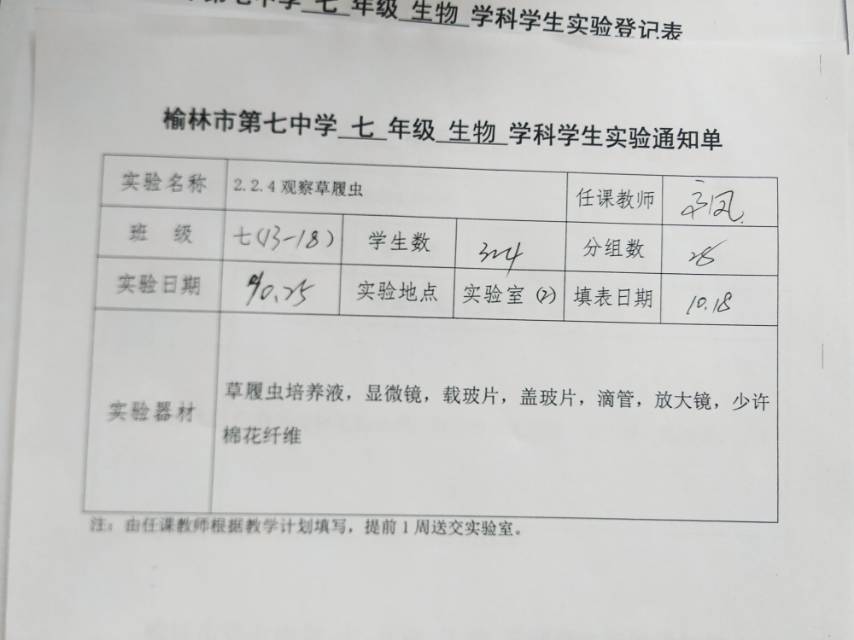 第七中学 七 年级 生物 学科学生实验登记表
榆林市第七中学 七 年级 生物 学科学生实验通知单
实验名称 2.2.4观察草履虫 任课教师
班 级 七(13-18) 学生数 324 分组数 28
实验日期 10.25 实验地点 实验室(2) 填表日期 10.18
实验器材 草履虫培养液，显微镜，载玻片，盖玻片，滴管，放大镜，少许
棉花纤维
注：由任课教师根据教学计划填写，提前1周送交实验室。